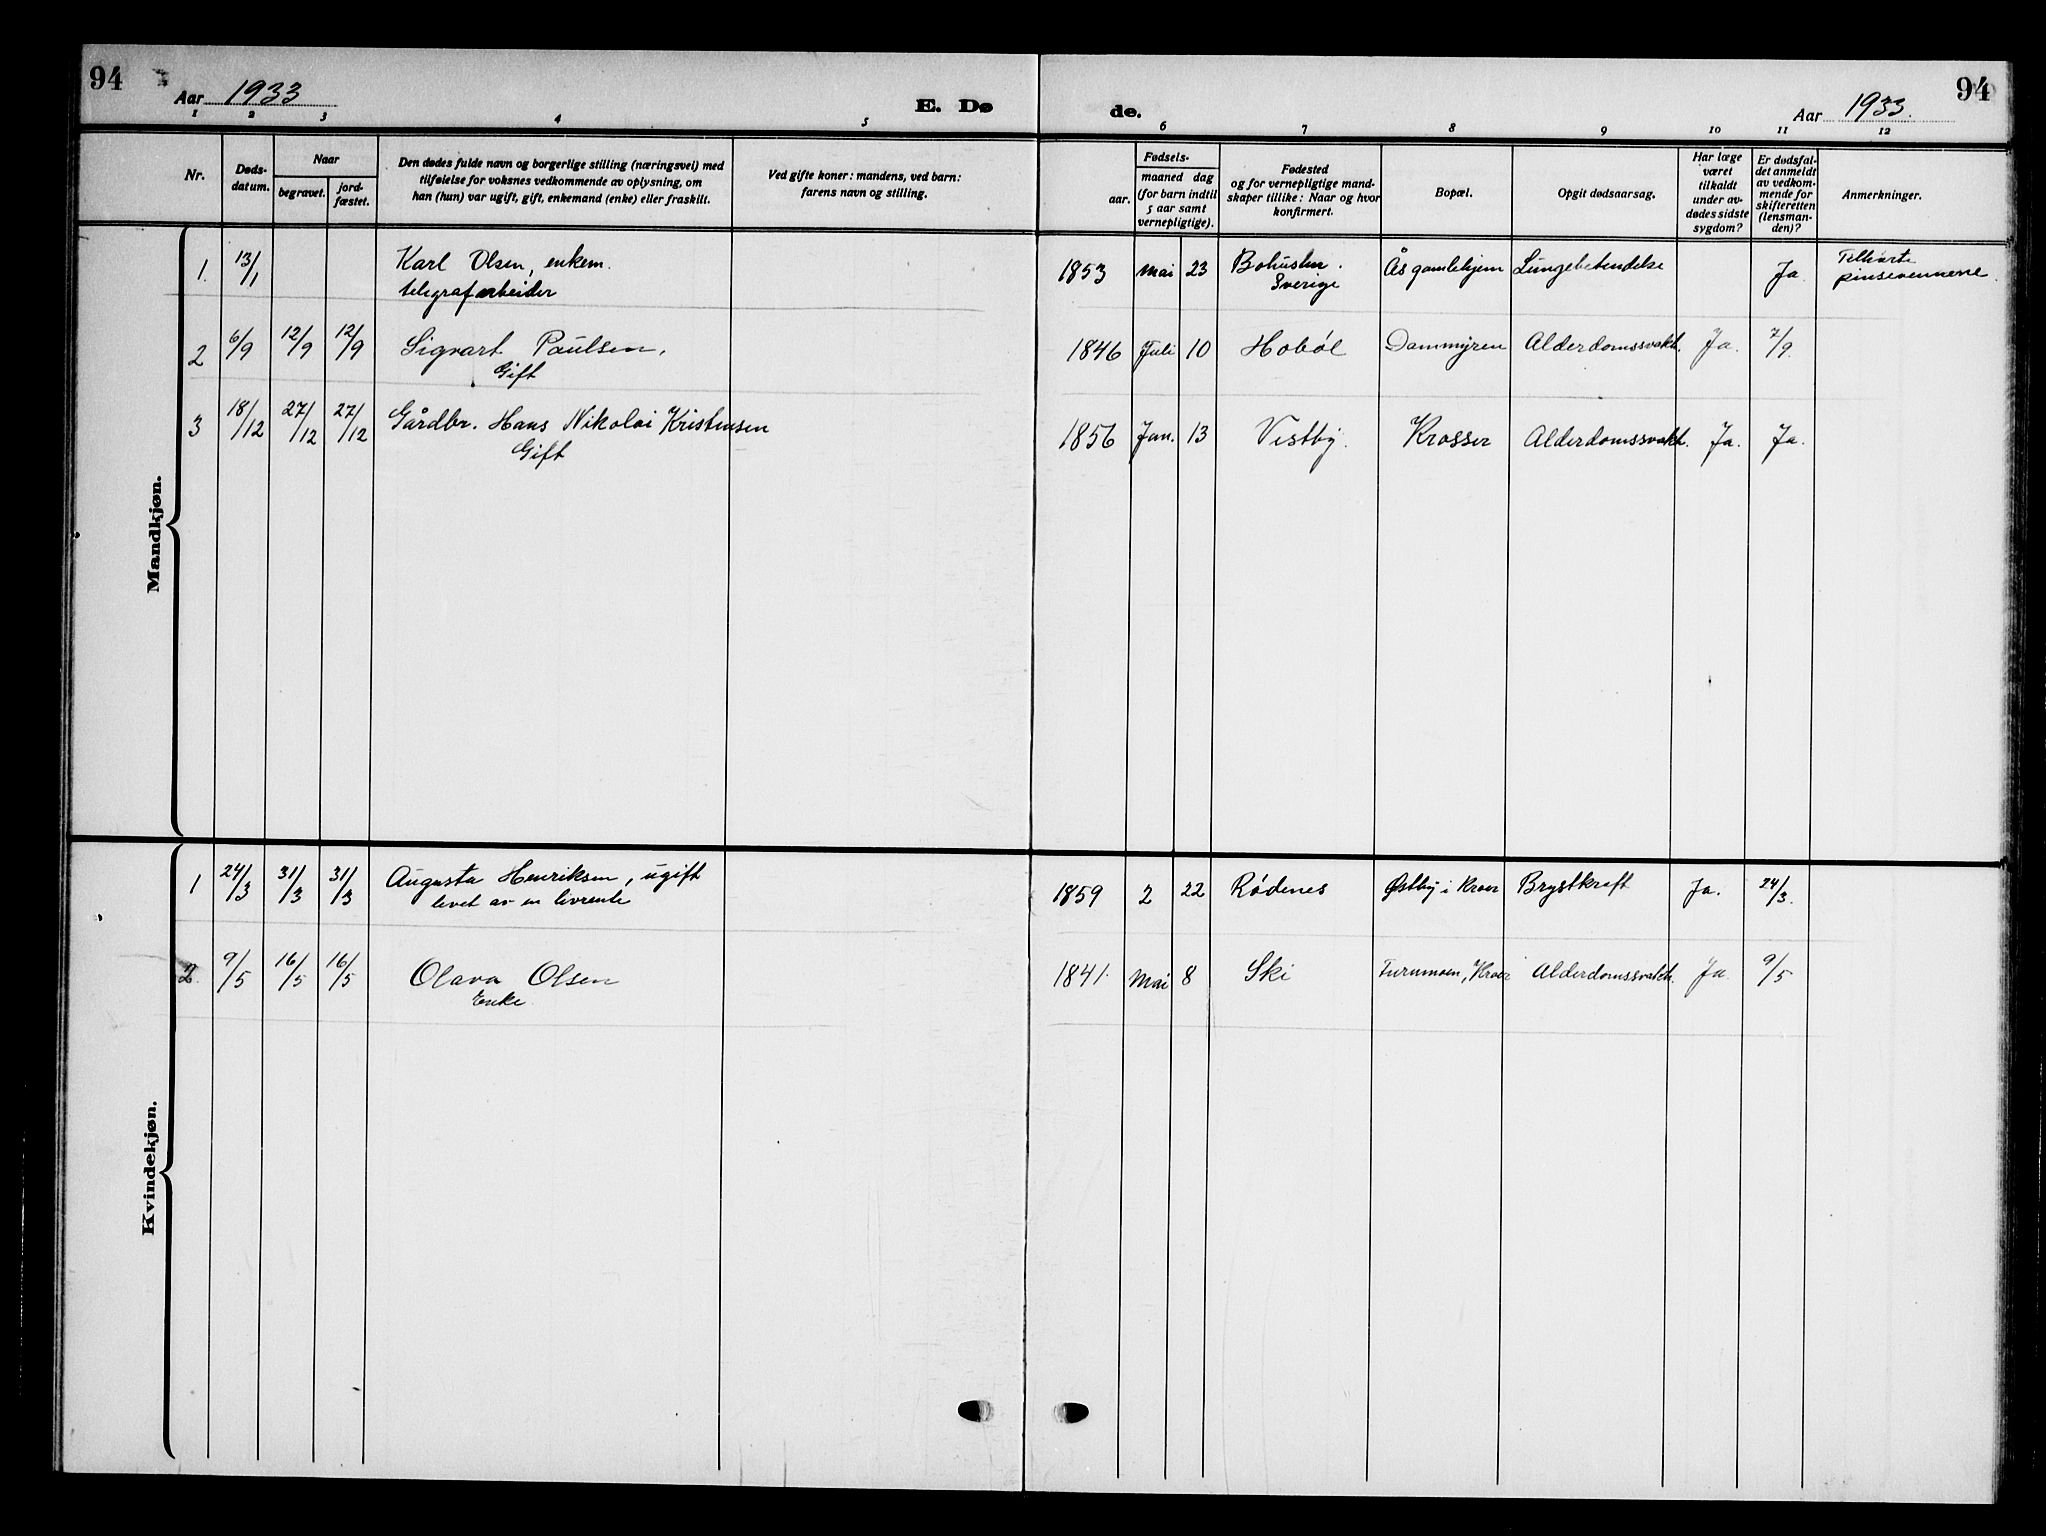 94
Aar 1933
E. Dø
de.
Aar 1933.
94
1 2 3 4 5 6 7 8 9 10 11 12
Nr.
Døds-
datum.
Naar
begravet.
jord-
fæstet.
Den dødes fulde navn og borgerlige stilling (næringsvei) med
tilføielse for voksnes vedkommende av oplysning, om
han (hun) var ugift, gift, enkemand (enke) eller fraskilt.
Ved gifte koner: mandens, ved barn:
farens navn og stilling.
Fødsels-
aar.
maaned dag
(for barn indtil
5 aar samt
vernepligtige).
Fødested
og for vernepligtige mand-
skaper tillike: Naar og hvor
konfirmert.
Bopæl.
Opgit dødsaarsag.
Har læge
været
tilkaldt
under av-
dødes sidste
sygdom?
Er dødsfal-
det anmeldt
av vedkom-
mende for
skifteretten
(lensman-
den)?
Anmerkninger.
Mandkjøn.
1. 13/1 Karl Olsen, enkem. 1853 Mai 23 Bohuslen. Ås gamlehjem Lungebetendelse Ja Tilhørte
telegrafarbeider Sverige pinsevennene
2 6/9 12/9 12/9 Sigvart Paulsen, 1846 Juli 10 Hobøl Dammyren Alderdomssvakh. Ja. 7/9.
Gift
3 18/12 27/12 27/12 Gårdbr. Hans Nikolai Kristensen 1856 Jan. 13 Vestby. Krosser Alderdomssvakh. Ja. Ja.
Gift
Kvindekjøn.
1 24/3 31/3 31/3 Augusta Henriksen, ugift 1859 2 22 Rødenes Østby i Kroer Brystkreft Ja. 24/3.
levet av en livrente
2. 9/5 16/5 16/5 Olava Olsen 1841. Mai 8 Ski Furumoen, Kroer Alderdomssvakh. Ja. 9/5
Enke